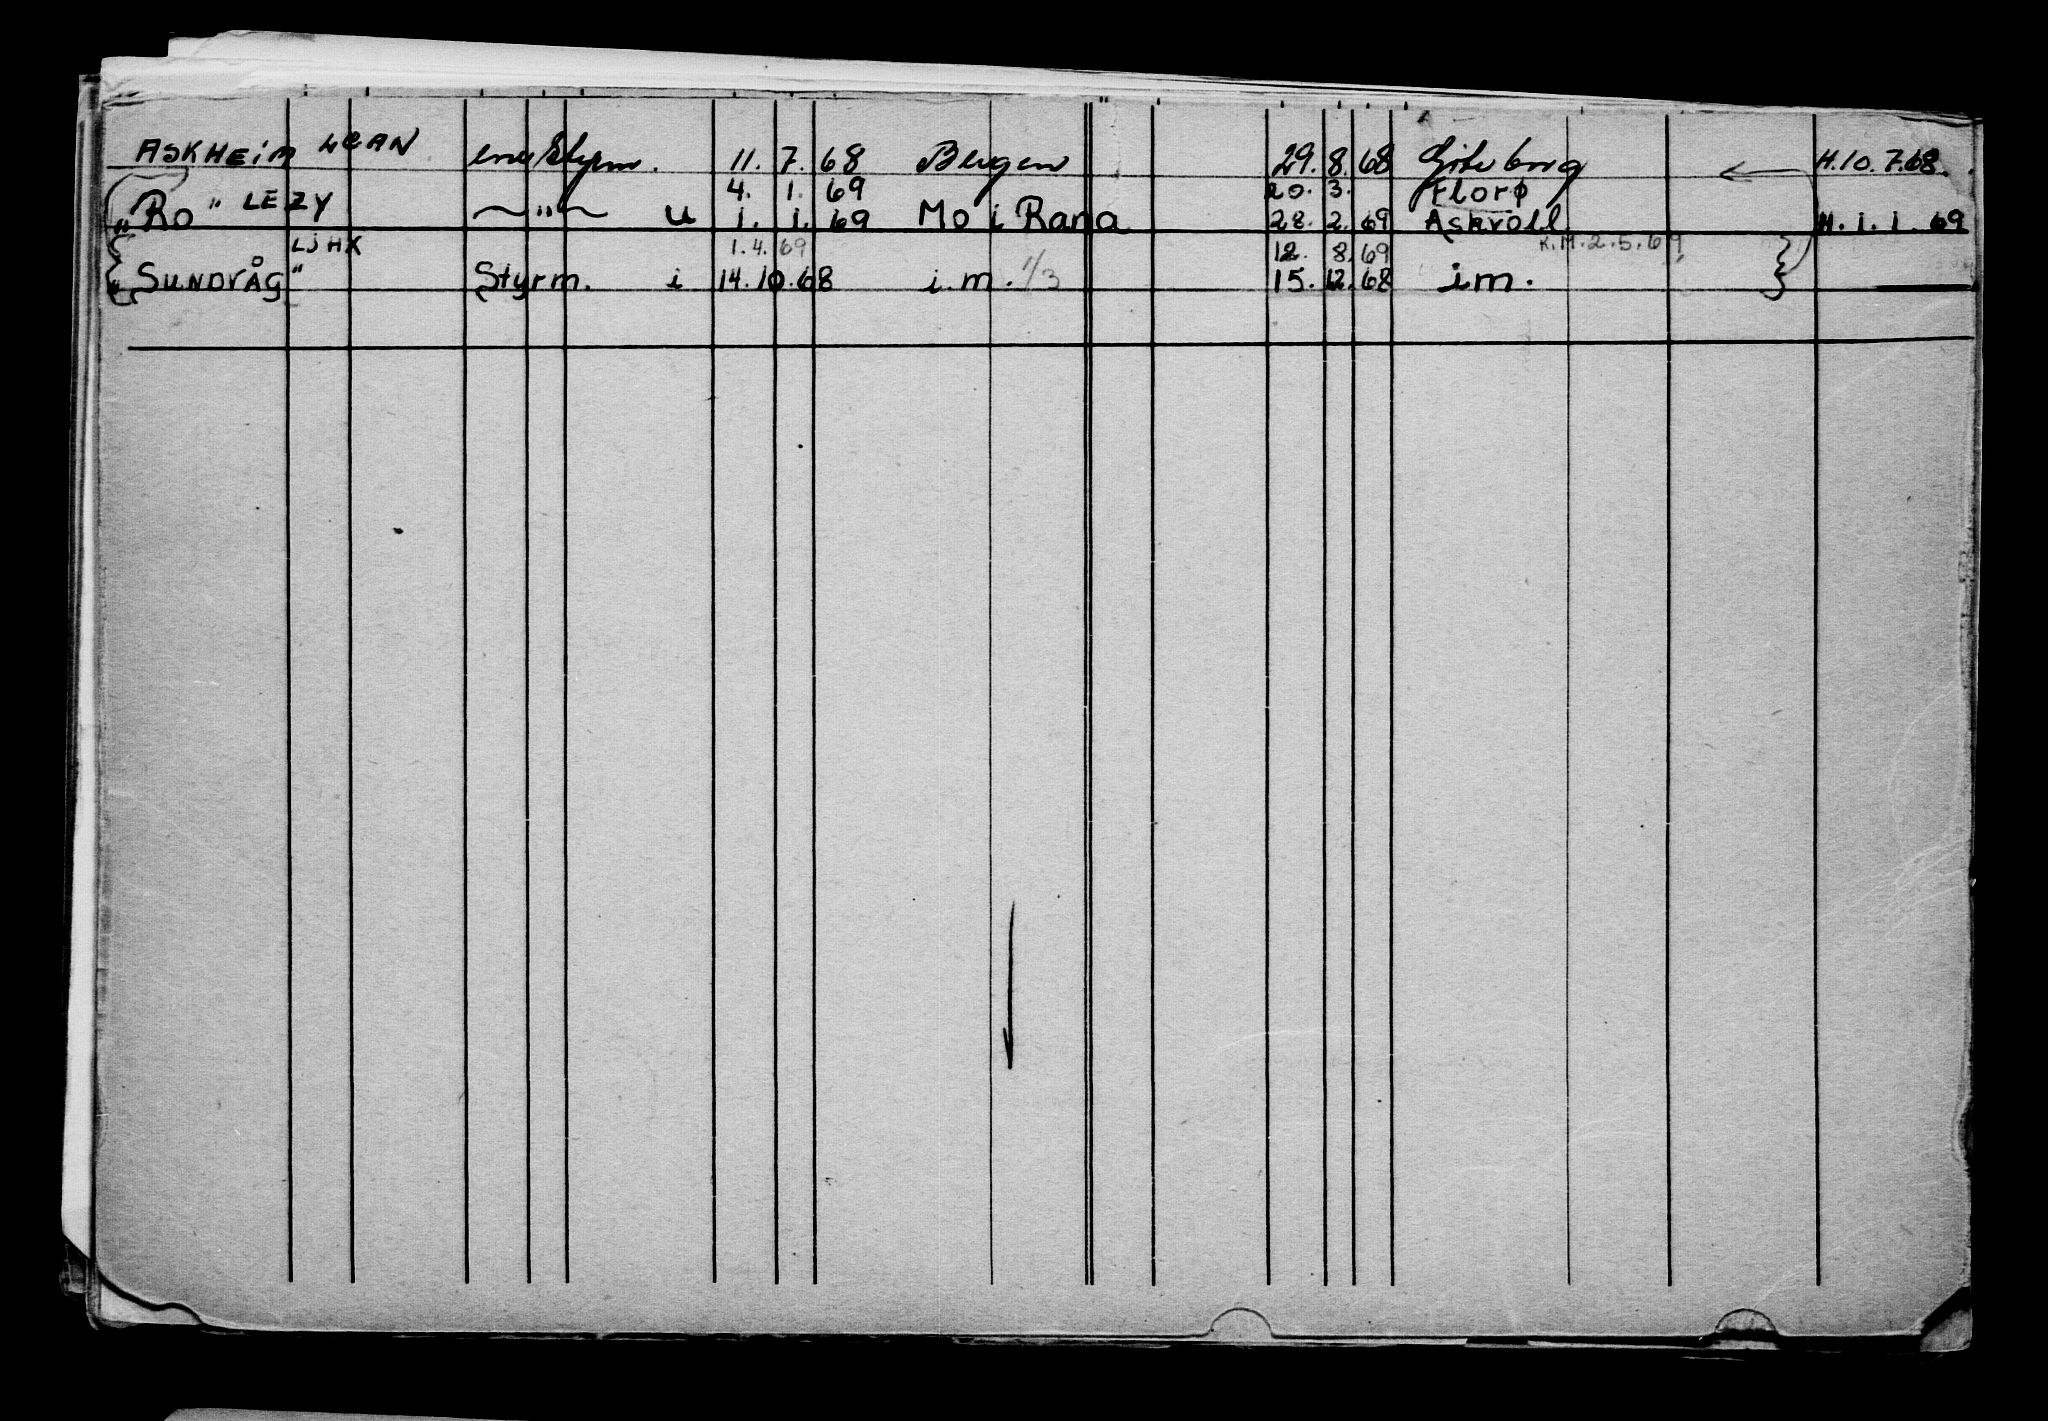 ASKHEIM LCAN eneStyrm. 11. 7. 68 Bergen 29. 8. 68 Göteborg H. 10. 7. 68.
4. 1. 69 20. 3. Florø
" Ro " LEZY " u 1. 1. 69 Mo i Rana 28. 2. 69 Askvoll H. 1. 1. 69
LJHX 1. 4. 69 12. 8. 69 K.M. 2. 5. 69
" SUNDVÅG " Styrm. i 14. 10. 68 i.m. 1/3 15. 12. 68 im.